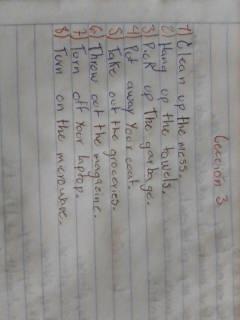 Leccion 3
1) Clean up the mess.
2) Hung up the towels.
3) Pick up The garbage.
4) Put away Your coat.
5) Take out the groceries.
6) Throw out the magazine.
7) Turn off Your laptop.
8) Turn on the microwave.